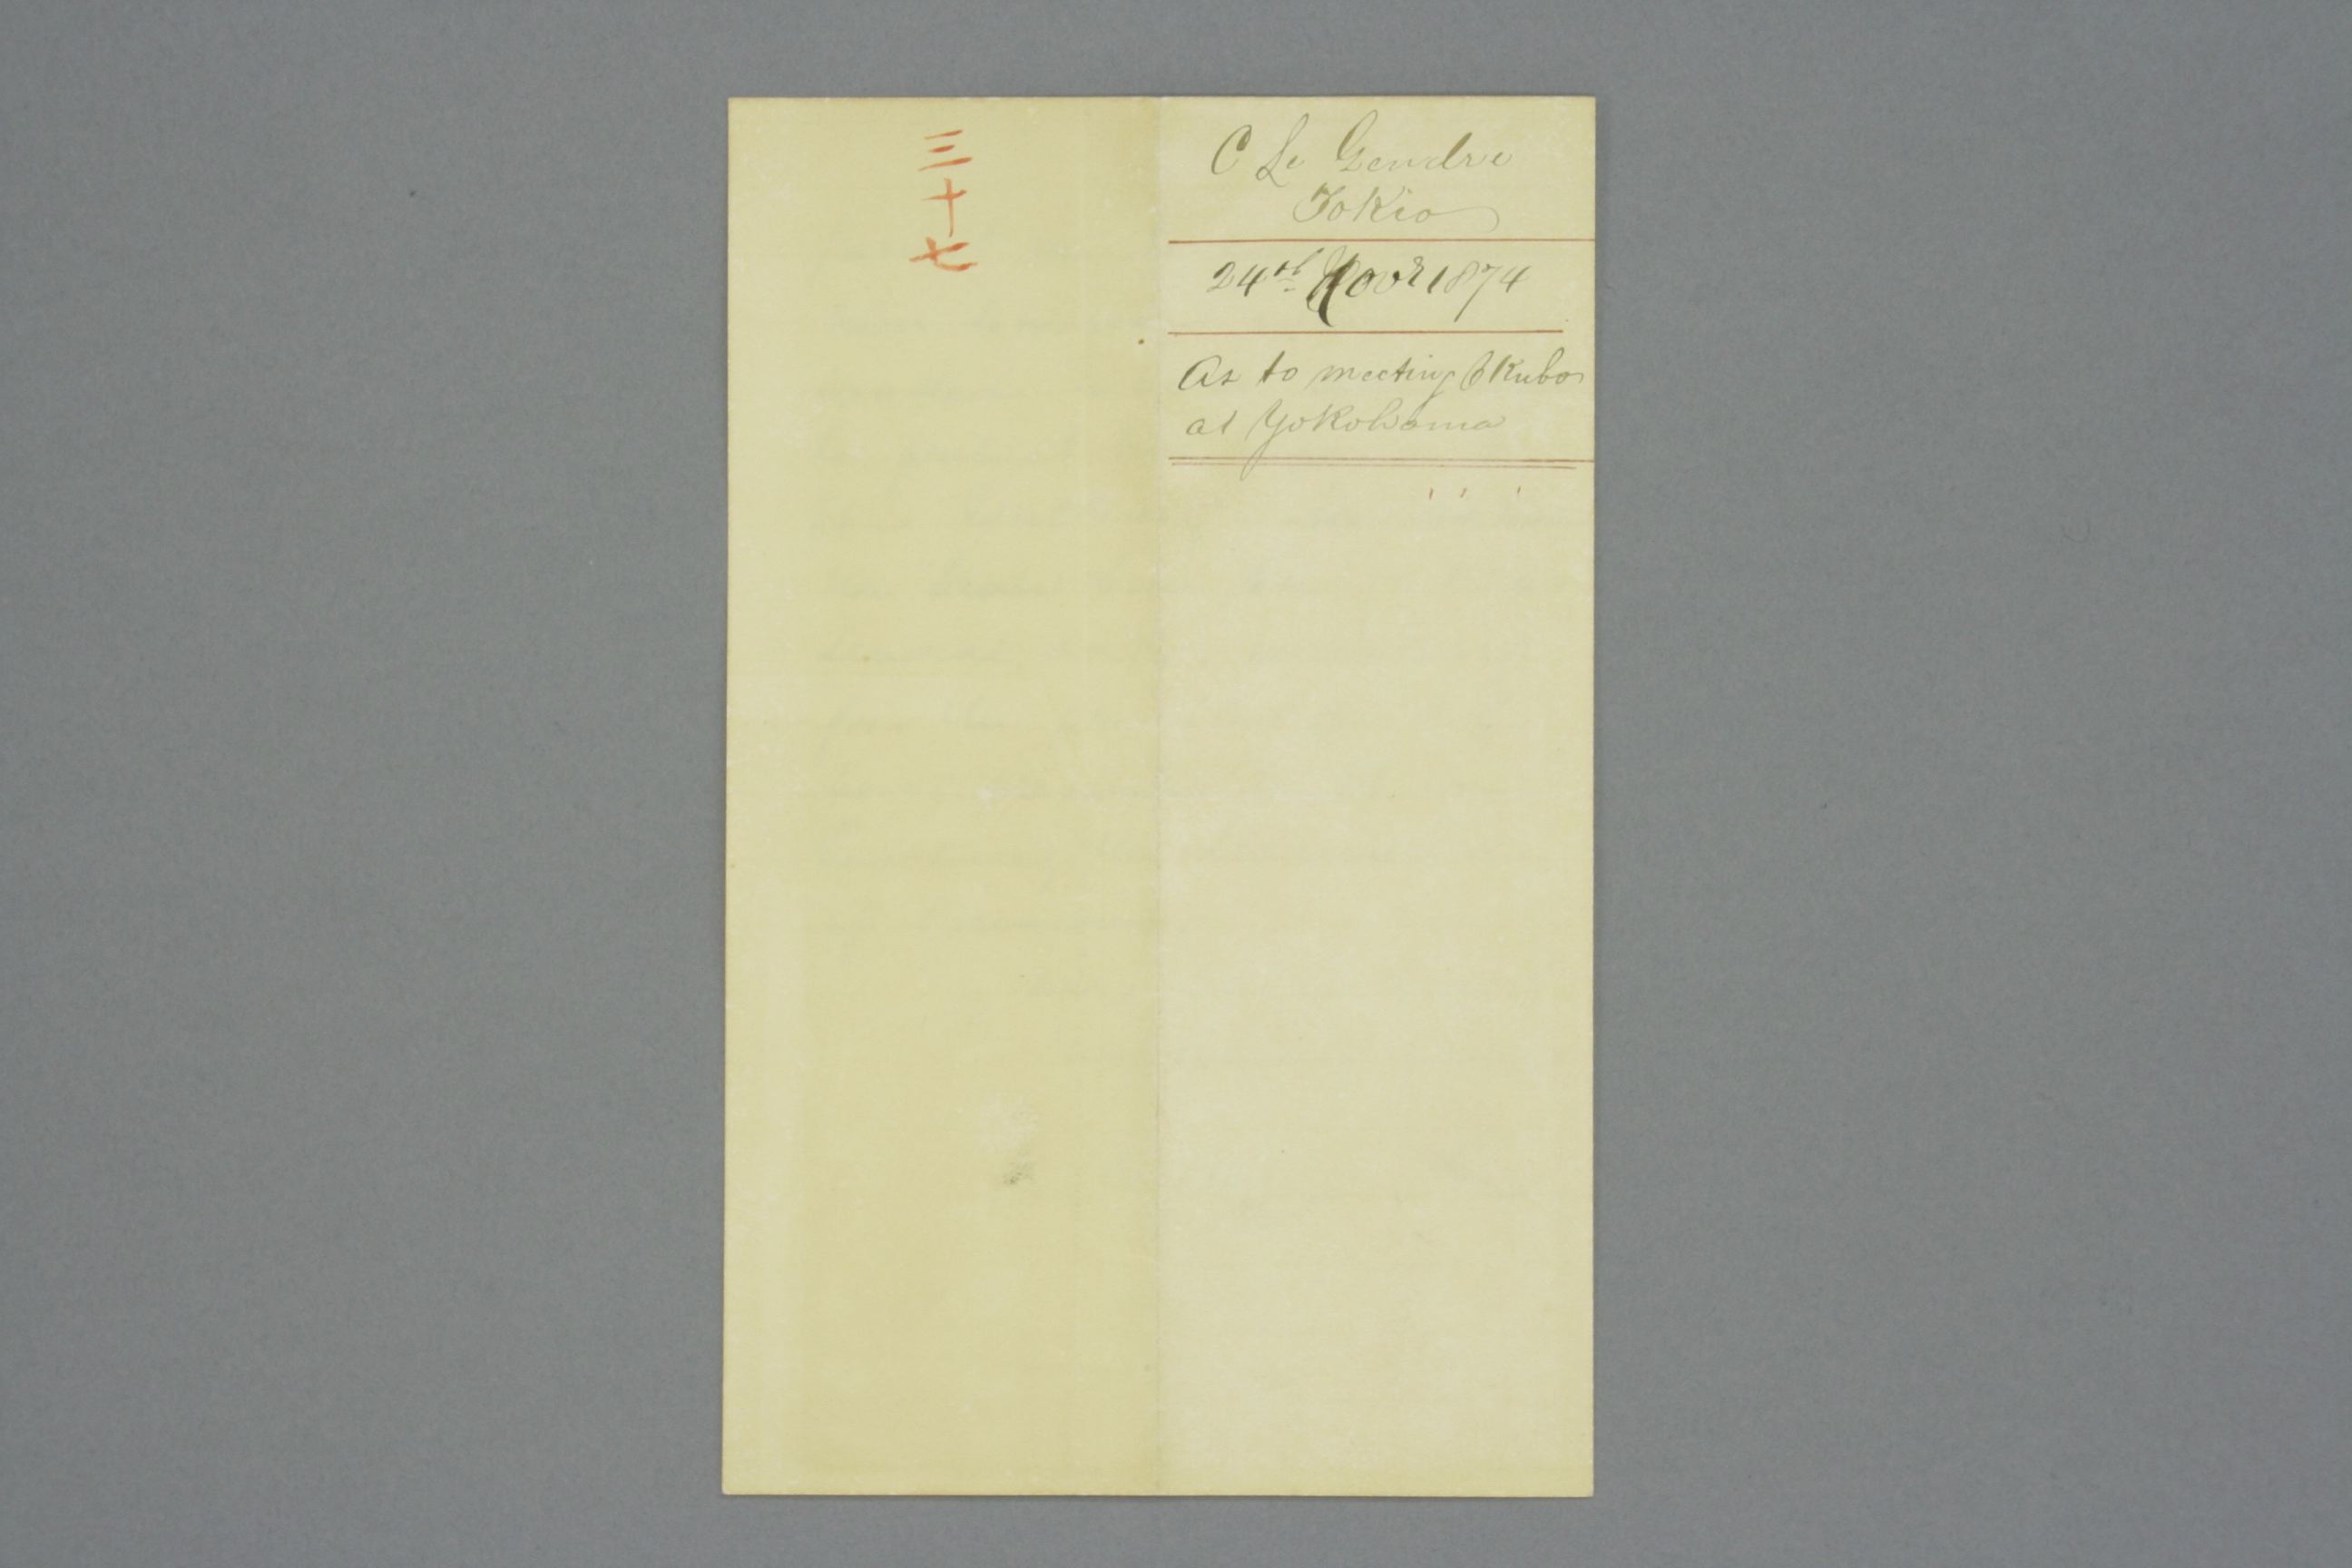 三十七
C Le Gendre
Tokio
24th Novr 1874
As to meeting Okubo
at Yokohama